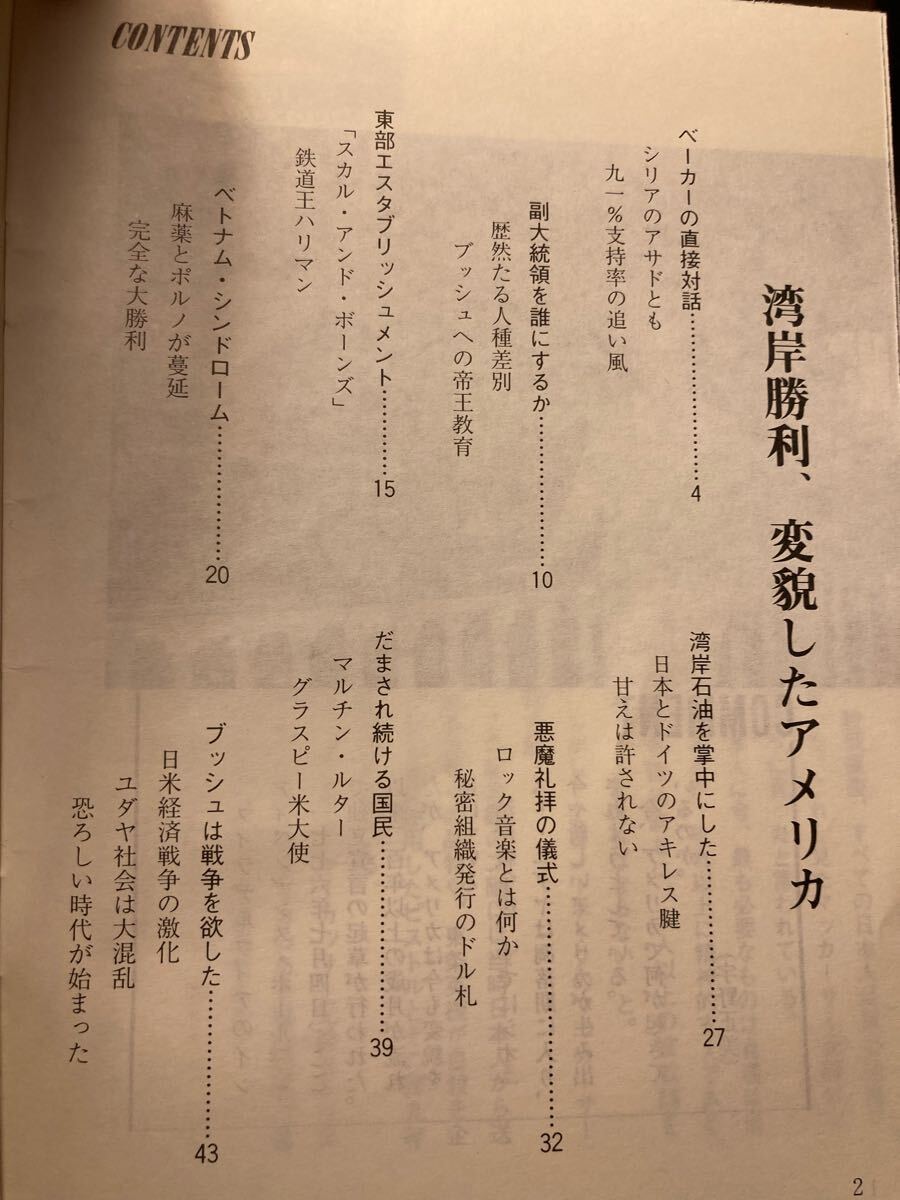 CONTENTS
湾岸勝利、変貌したアメリカ
ベーカーの直接対話……………………4
シリアのアサドとも
九一%支持率の追い風
副大統領を誰にするか……………………10
歴然たる人種差別
ブッシュへの帝王教育
東部エスタブリッシュメント…………15
「スカル・アンド・ボーンズ」
鉄道王ハリマン
ベトナム・シンドローム………………20
麻薬とポルノが蔓延
完全な大勝利
湾岸石油を掌中にした……………………27
日本とドイツのアキレス腱
甘えは許されない
悪魔礼拝の儀式……………………………32
ロック音楽とは何か
秘密組織発行のドル札
だまされ続ける国民………………………39
マルチン・ルター
グラスピー米大使
ブッシュは戦争を欲した…………………43
日米経済戦争の激化
ユダヤ社会は大混乱
恐ろしい時代が始まった
2